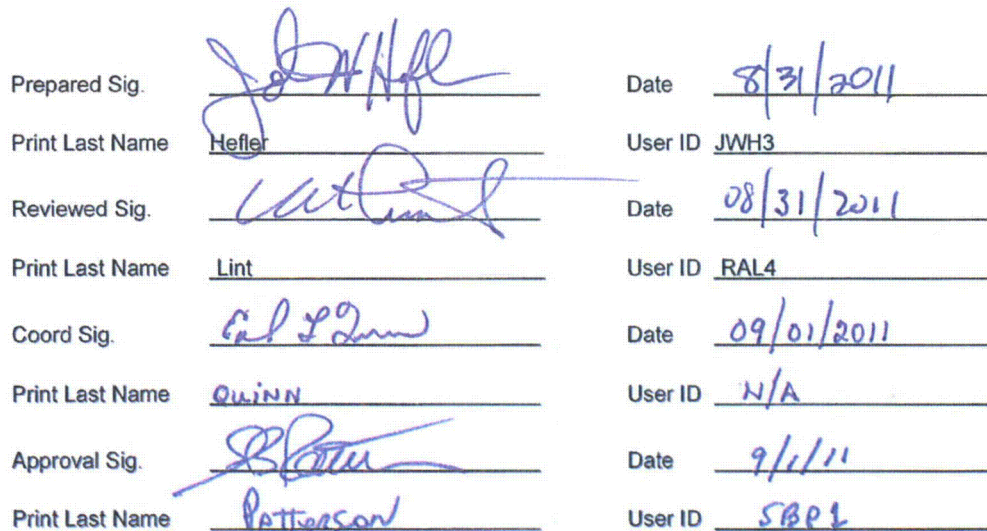 Prepared Sig. John W Hefl Date 8/31/2011
Print Last Name Hefler User ID JWH3
Reviewed Sig. Date 08/31/2011
Print Last Name Lint User ID RAL4
Coord Sig. Date 09/01/2011
Print Last Name QUINN User ID N/A
Approval Sig. Date 9/1/11
Print Last Name PATTERSON User ID SBP1